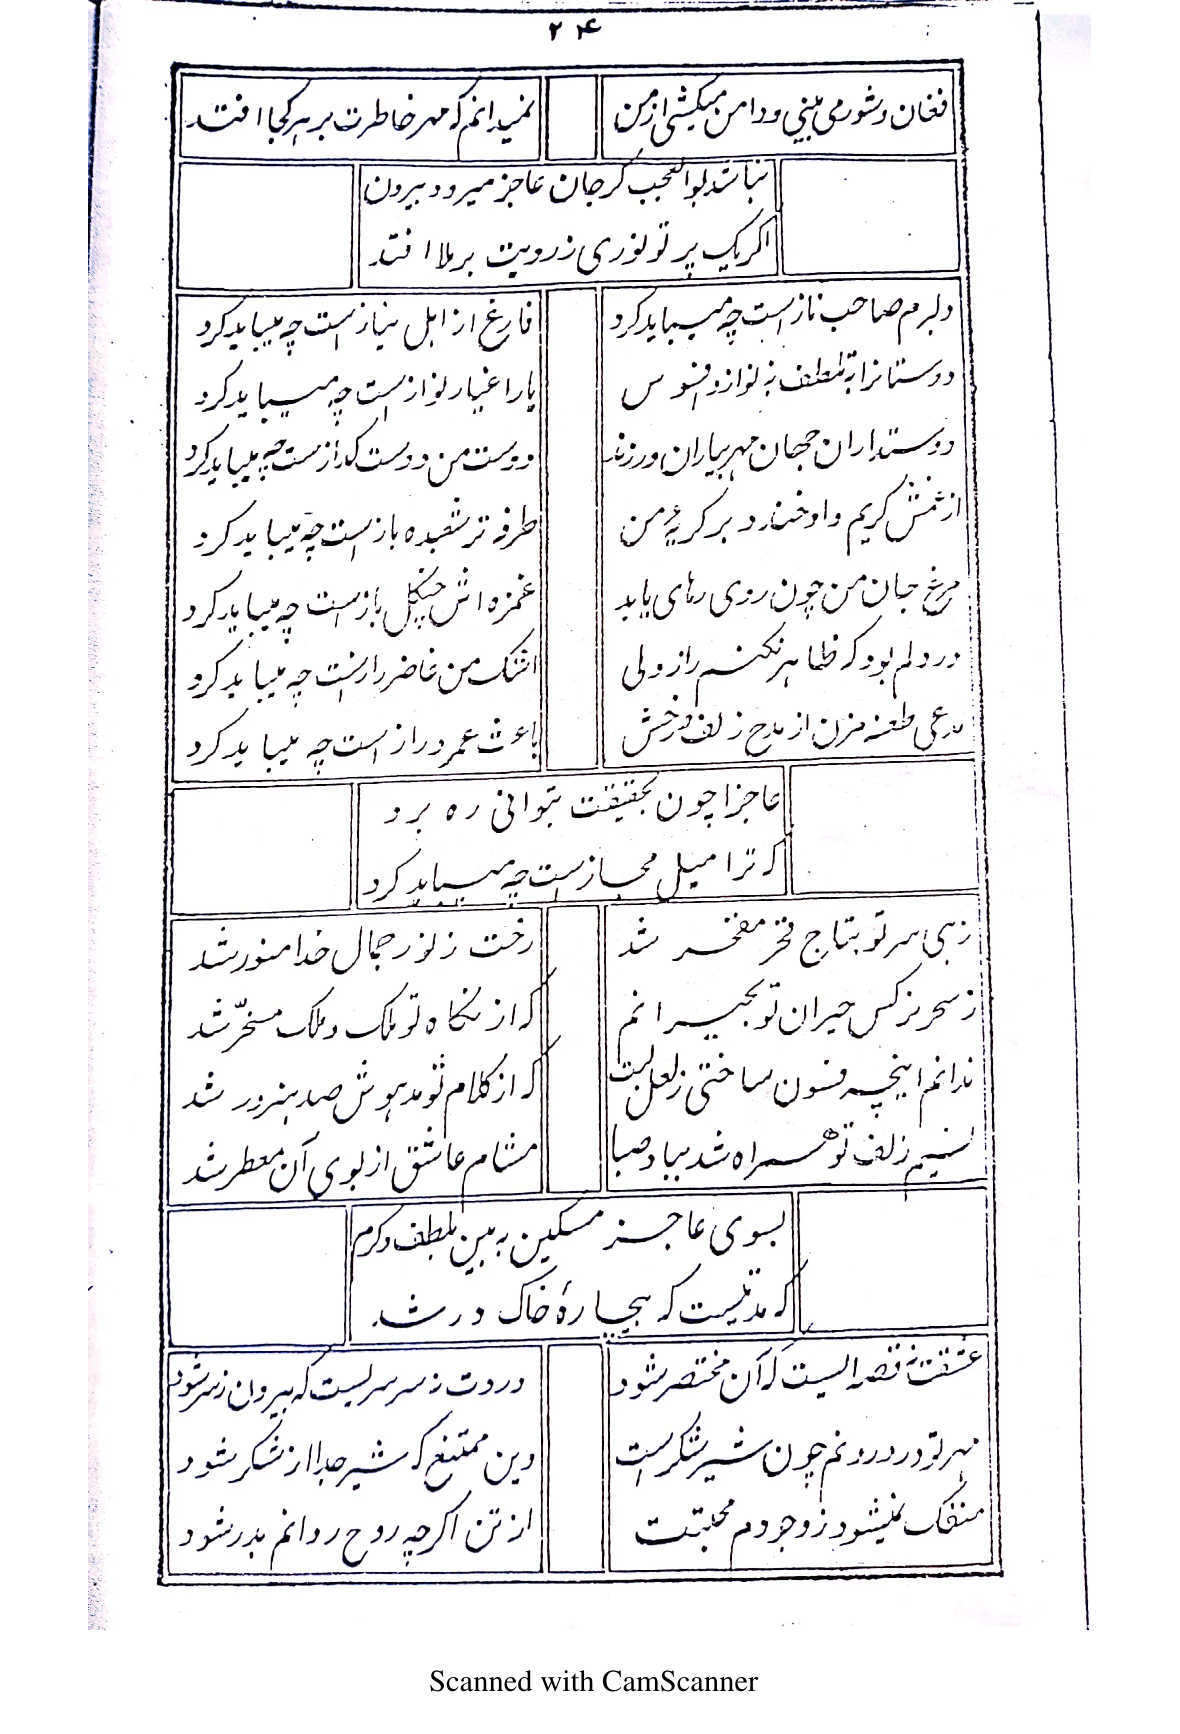 ۲۴
فغان و شوری بینی و دامن میکشی از من نمیدانم که مهر خاطرت بر هر کجا افتد
نباشد بوالعجب گر جان عاجز میرود بیرون
اگر یک پرتو نوری ز رویت برملا افتد
دلبرم صاحب ناز است چه میباید کرد فارغ از اهل نیاز است چه میباید کرد
دوستانرا به تلطف نه نوازد افسوس یار اغیار نواز است چه میباید کرد
دوستداران جهان مهر بیاران ورزند دوست من دوست گداز ست چه میباید کرد
از غمش گریم و او خندد بر گریهٔ من طرفه تر شعبده باز است چه میباید کرد
مرغ جان من چون روی رهای یابد غمزه اش چنگل باز ست چه میباید کرد
در دلم بود که ظاهر نکنم راز ولی اشک من غاضر راز ست چه میباید کرد
مدعی طعنه مزن از مدح زلف و رخش باعث عمر دراز است چه میباید کرد
عاجزا چون بحقیقت بتوانی ره برد
که ترا میل مجاز ست چه میباید کرد
زهی سر تو بتاج فخر مفخر شد رخت ز نور جمال خدا منور شد
ز سحر نرگس حیران تو بحیرانم که از نگاه تو ملک و ملک مسخّر شد
ندانم اینچه فسون ساختی ز لعل لبت که از کلام تو مدهوش صد هنرور شد
نسیم زلف تو همراه شد بباد صبا مشام عاشق از بوی آن معطر شد
بسوی عاجز مسکین به بین بلطف و کرم
که مدتیست که بیچارهٔ خاک در شد
عشقت نه قصه ایست که آن مختصر شود دردت نه سرسریست که بیرون ز سر شود
مهر تو در درونم چون شیر شکر است وین ممتنع که شیر جدا از شکر شود
منفک نمیشود ز وجودم محبتت از تن اگرچه روح روانم بدر شود
Scanned with CamScanner